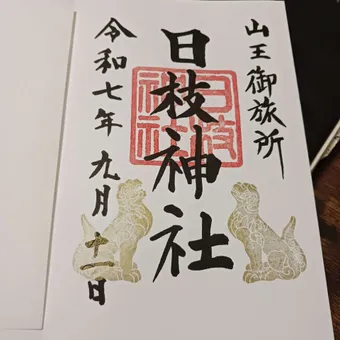 山王御旅所
日枝神社
日枝神社
令和七年九月十一日